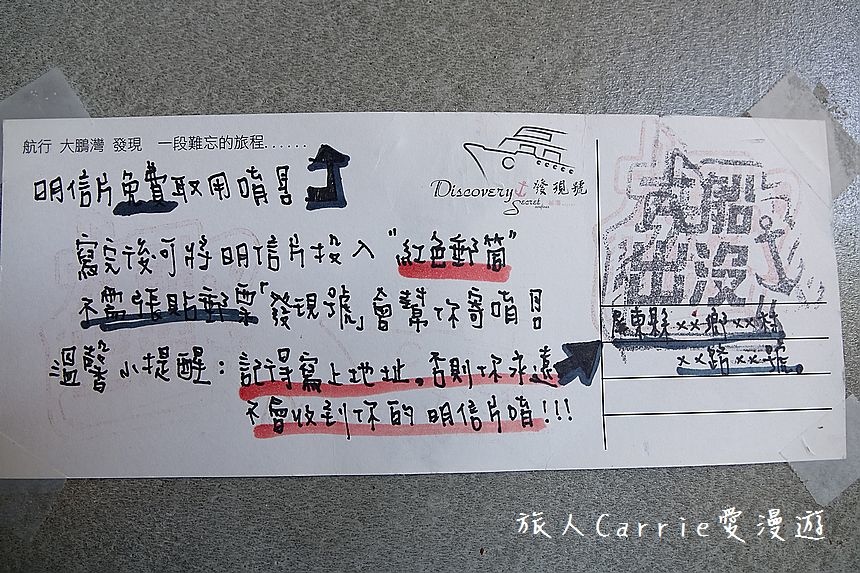 航行 大鵬灣 發現 一段難忘的旅程......
明信片免費取用唷
Discovery 發現號
Secret
大船
出沒
寫完後可將明信片投入"紅色郵筒"
不需張貼郵票「發現號」會幫你寄唷
溫馨小提醒：記得寫上地址。否則你永遠
不會收到你的明信片唷!!!
屏東縣××鄉××村
××路××號。
旅人Carrie愛漫遊